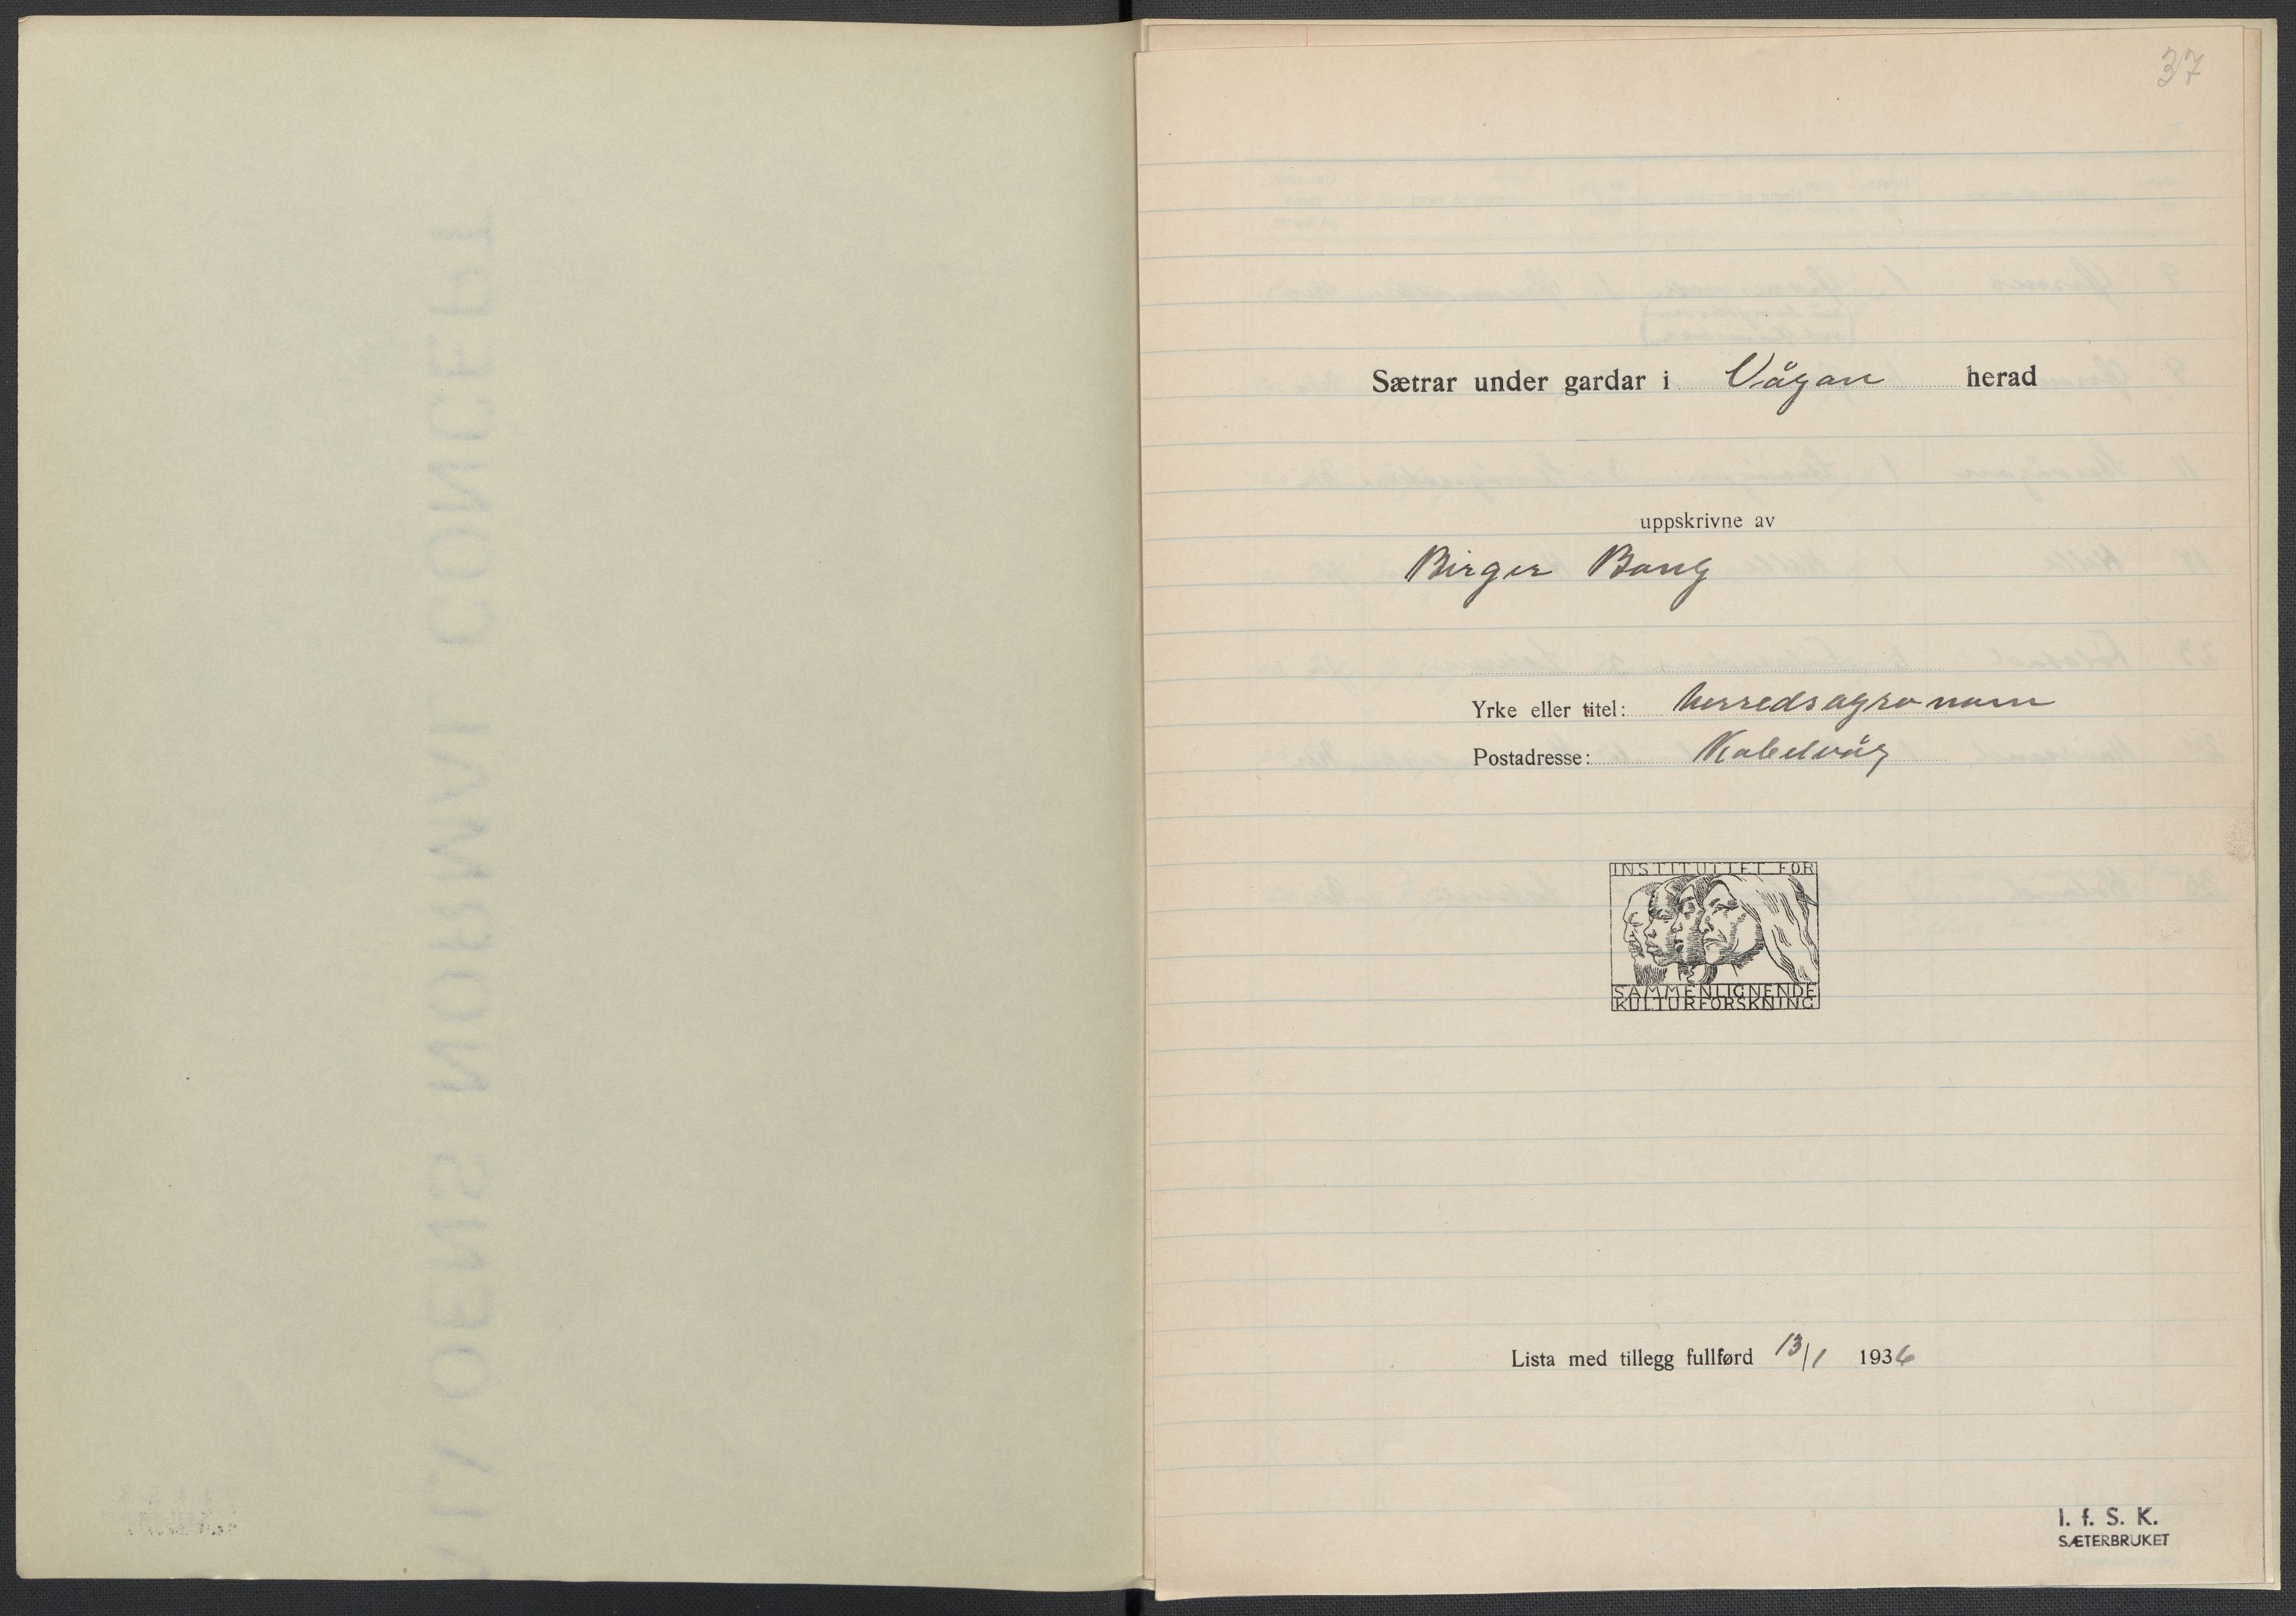 37
Sætrar under gardar i Vågan herad
uppskrivne av
Birger Bang
Yrke eller titel: herredsagronom
Postadresse: Kabelvåg
INSTITUTTET FOR
SAMMENLIGNENDE
KULTURFORSKNING
Lista med tillegg fullførd 13/1 1936
I. f. S. K.
SÆTERBRUKET